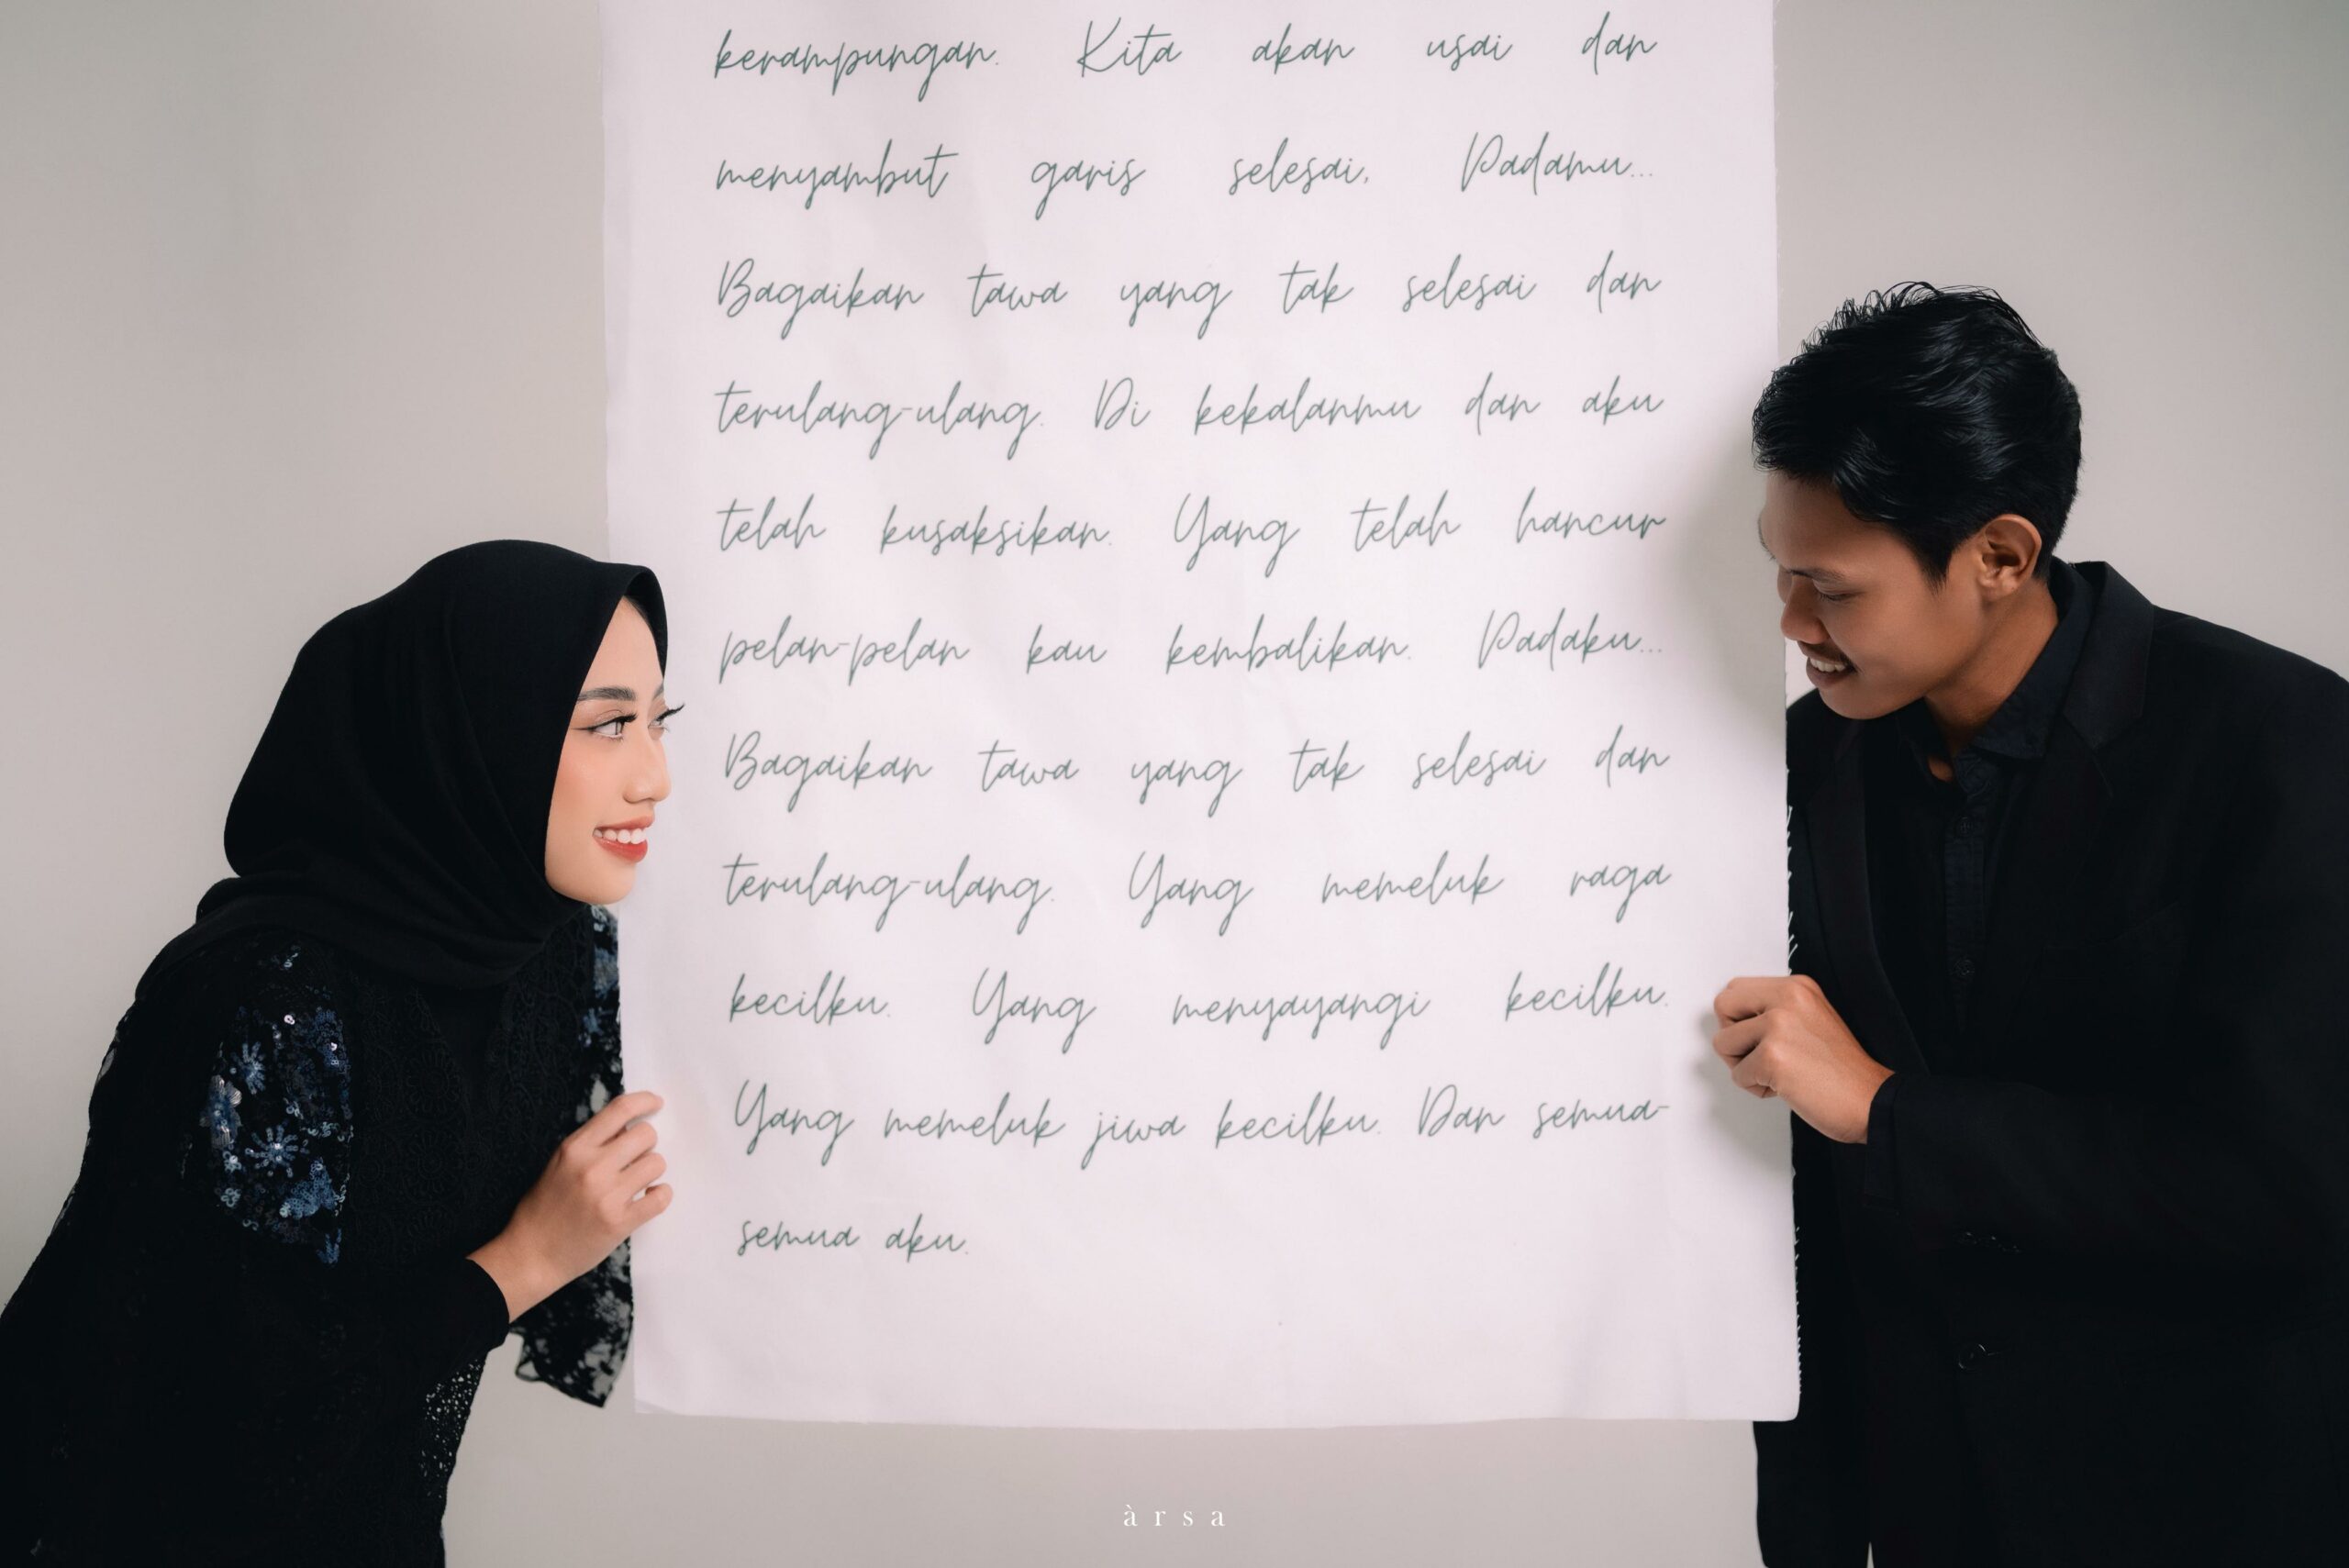 kerampungan. Kita akan usai dan
menyambut garis selesai. Padamu...
Bagaikan tawa yang tak selesai dan
terulang-ulang. Di kekalanmu dan aku
telah kusaksikan. Yang telah hancur
pelan-pelan kau kembalikan. Padaku...
Bagaikan tawa yang tak selesai dan
terulang-ulang. Yang memeluk raga
kecilku. Yang menyayangi kecilku.
Yang memeluk jiwa kecilku. Dan semua-
semua aku.
àrsa